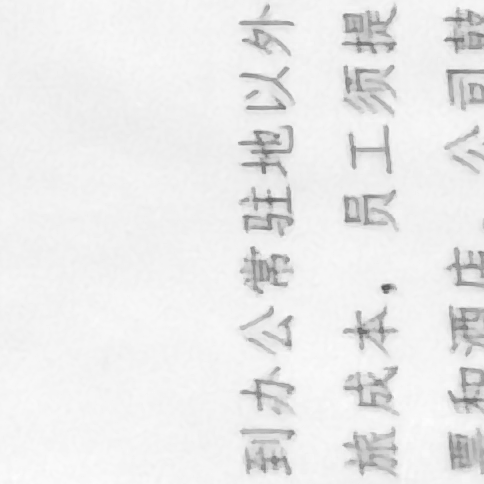 到办公常驻地以外
旅成本，员工须提
和酒店，公司鼓